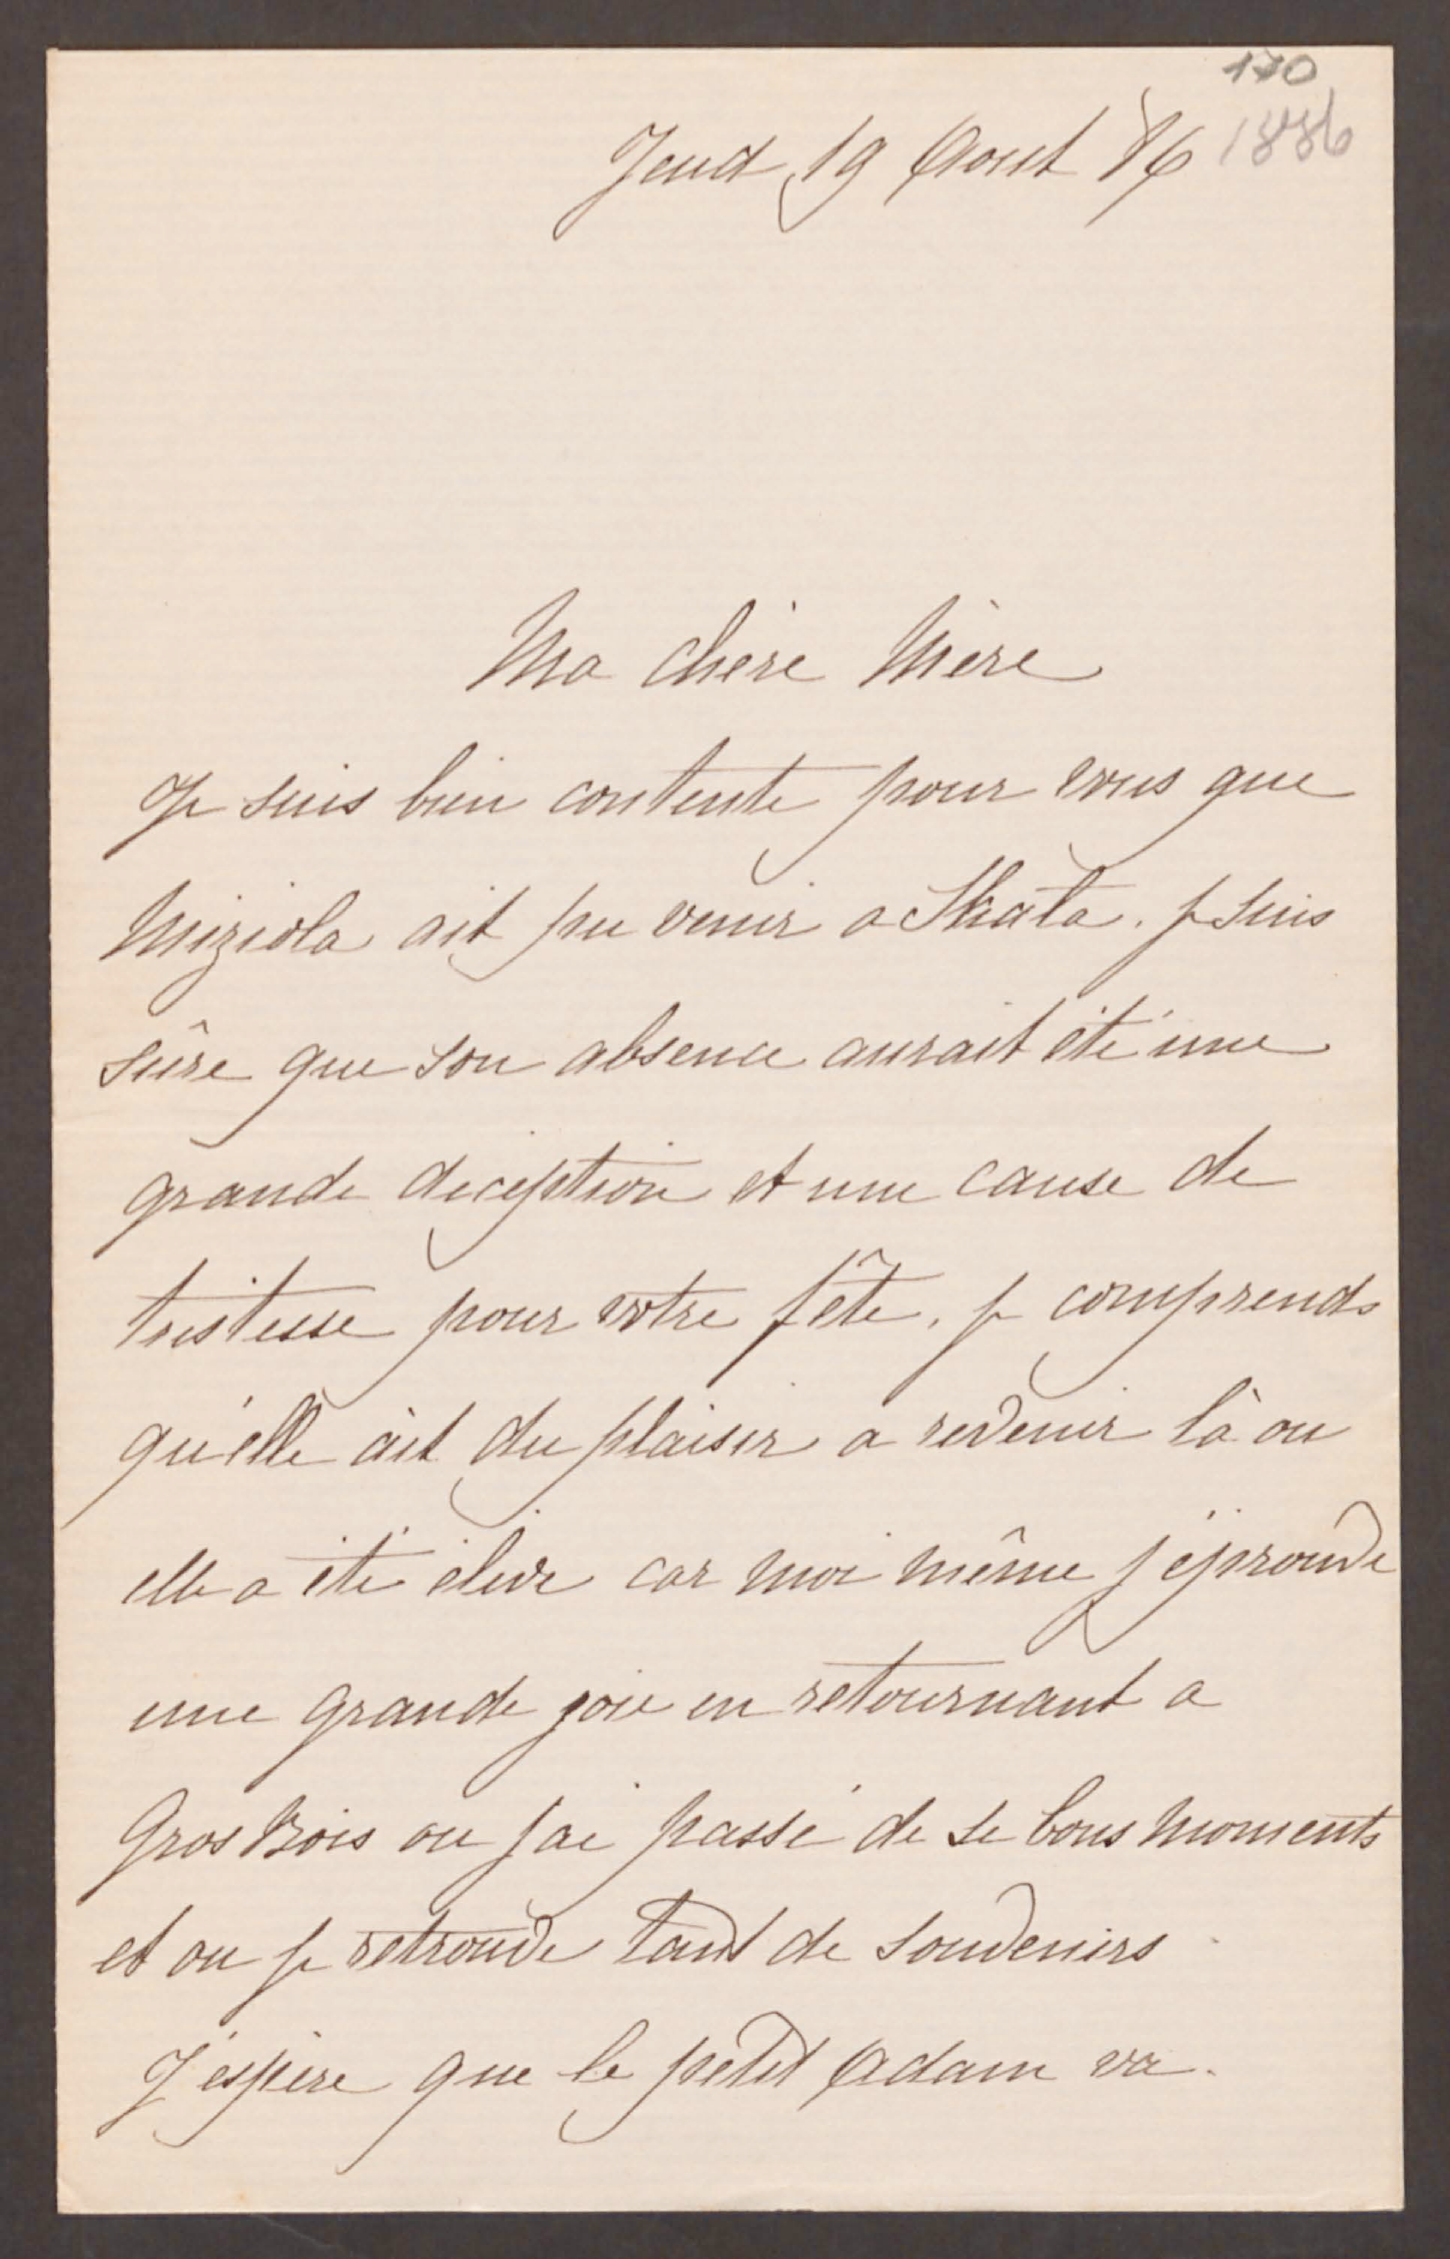 170
1886
Jeud 19 Aout 86
Ma chère Mère
Je suis bien contente pour vous que
Miziola ait pu venir a Skala. je suis
sûre que son absence aurait été une
grande deception et une cause de
tristesse pour votre fête. je comprends
qu'elle ait du plaisir a revenir là ou
elle a été élevé car moi même j'éprouve
une grande joie en retournant a
Gros Bois ou j'ai passé de si bons moments
et ou je retrouve tant de souvenirs
J'espère que le petit Adam va.